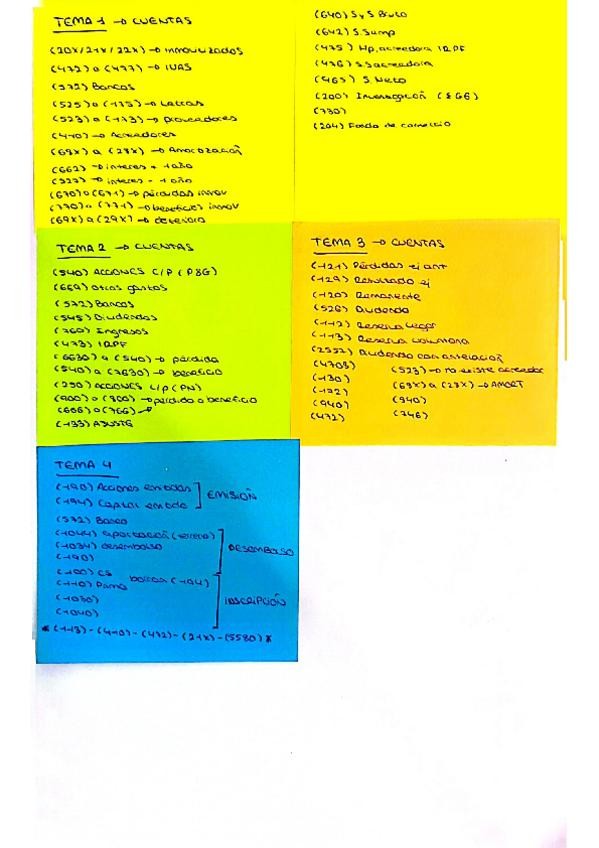 TEMA 1 → CUENTAS
(20X/21X/22X) → inmovilizados
(472) o (477) → IVAS
(572) Bancos
(525) o (175) → Letras
(523) o (173) → proveedores
(410) → Acreedores
(68X) a (28X) → Amortización
(662) → interes + 1 año
(527) → interes - 1 año
(670) o (671) → pérdidas inmov
(770) o (771) → beneficios inmov
(69X) a (29X) → deterioro
(640) S y S Bruto
(642) S.S emp
(475) Hp, acreedora IRPF
(476) S.S acreedora
(465) S. Neto
(200) Investigación (EGG)
(730)
(204) Fondo de comercio
TEMA 2 → CUENTAS
(540) ACCIONES C/P (P&G)
(669) otros gastos
(572) Bancos
(545) Dividendos
(760) Ingresos
(473) IRPF
(6630) a (540) → pérdida
(540) a (7630) → beneficio
(250) ACCIONES L/P (PN)
(800) o (900) → pérdida o beneficio
(666) o (766) →
(133) AJUSTE
TEMA 3 → CUENTAS
(121) Pérdidas ej ant
(129) Resultado ej
(120) Remanente
(526) Dividendo
(112) Reserva legal
(113) Reserva voluntaria
(2552) dividendo con antelación
(4708) (523) → no existe acreedor
(130) (68X) a (28X) → AMORT
(172) (840)
(940) (746)
(472)
TEMA 4
(190) Acciones emitidas
EMISIÓN
(194) Capital emitido
(572) Banco
(1044) aportación (terreno)
(1034) desembolso
DESEMBOLSO
(190)
(100) CS
(110) Prima
(1030)
INSCRIPCIÓN
(1040)
* (113) - (410) - (472) - (21X) - (5580) *